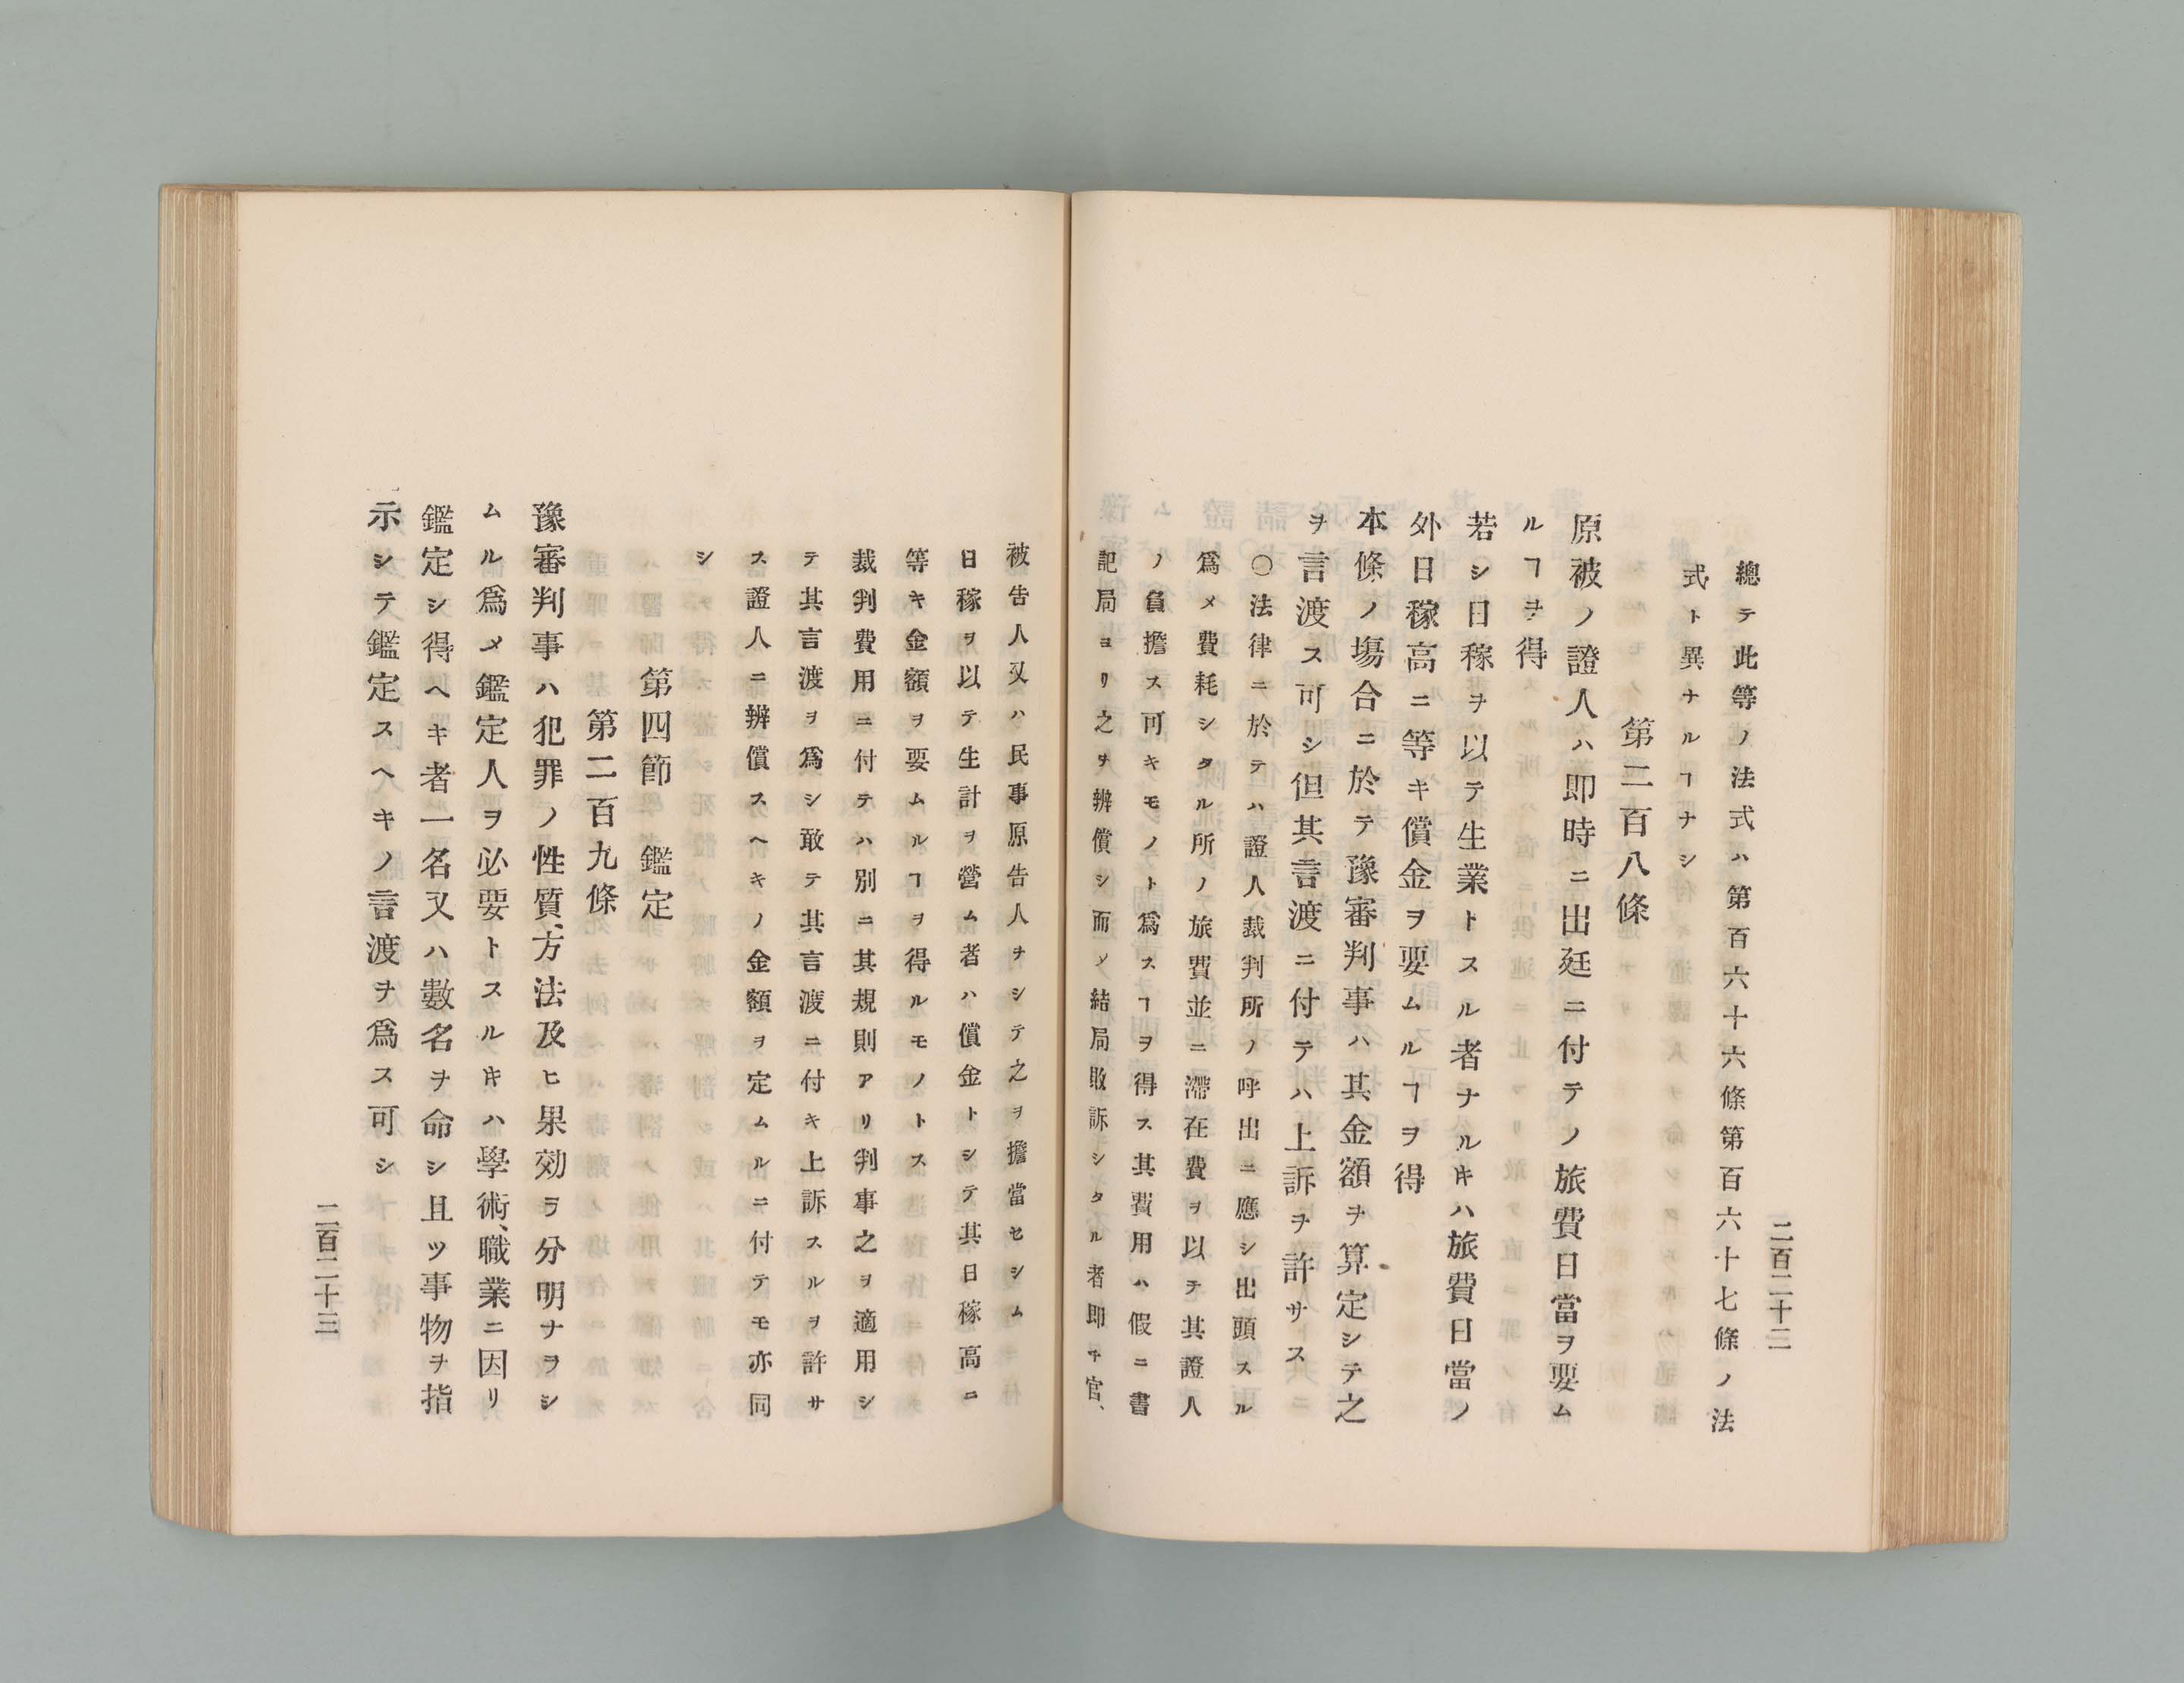 二百二十二
總テ此等ノ法式ハ第百六十六條第百六十七條ノ法
式ト異ナルヿナシ
第二百八條
原被ノ證人ハ即時ニ出廷ニ付テノ旅費日當ヲ要ム
ルヿヲ得
若シ日稼ヲ以テ生業トスル者ナルキハ旅費日當ノ
外日稼高ニ等キ償金ヲ要ムルヿヲ得
本條ノ塲合ニ於テ豫審判事ハ其金額ヲ算定シテ之
ヲ言渡ス可シ但其言渡ニ付テハ上訴ヲ許サス
〇法律ニ於テハ證人裁判所ノ呼出ニ應シ出頭スル
爲メ費耗シタル所ノ旅費並ニ滯在費ヲ以テ其證人
ノ負擔ス可キモノト爲スヿヲ得ス其費用ハ假ニ書
記局ヨリ之ヲ辨償シ而メ結局敗訴シタル者即チ官、
被告人又ハ民事原告人ヲシテ之ヲ擔當セシム
日稼ヲ以テ生計ヲ營ム者ハ償金トシテ其日稼高ニ
等キ金額ヲ要ムルヿヲ得ルモノトス
裁判費用ニ付テハ別ニ其規則アリ判事之ヲ適用シ
テ其言渡ヲ爲シ敢テ其言渡ニ付キ上訴スルヲ許サ
ス證人ニ辨償スヘキノ金額ヲ定ムルニ付テモ亦同
シ
第四節　鑑定
第二百九條
豫審判事ハ犯罪ノ性質、方法及ヒ果効ヲ分明ナラシ
ムル爲メ鑑定人ヲ必要トスルキハ學術、職業ニ因リ
鑑定シ得ヘキ者一名又ハ數名ヲ命シ且ツ事物ヲ指
示シテ鑑定スヘキノ言渡ヲ爲ス可シ
二百二十三